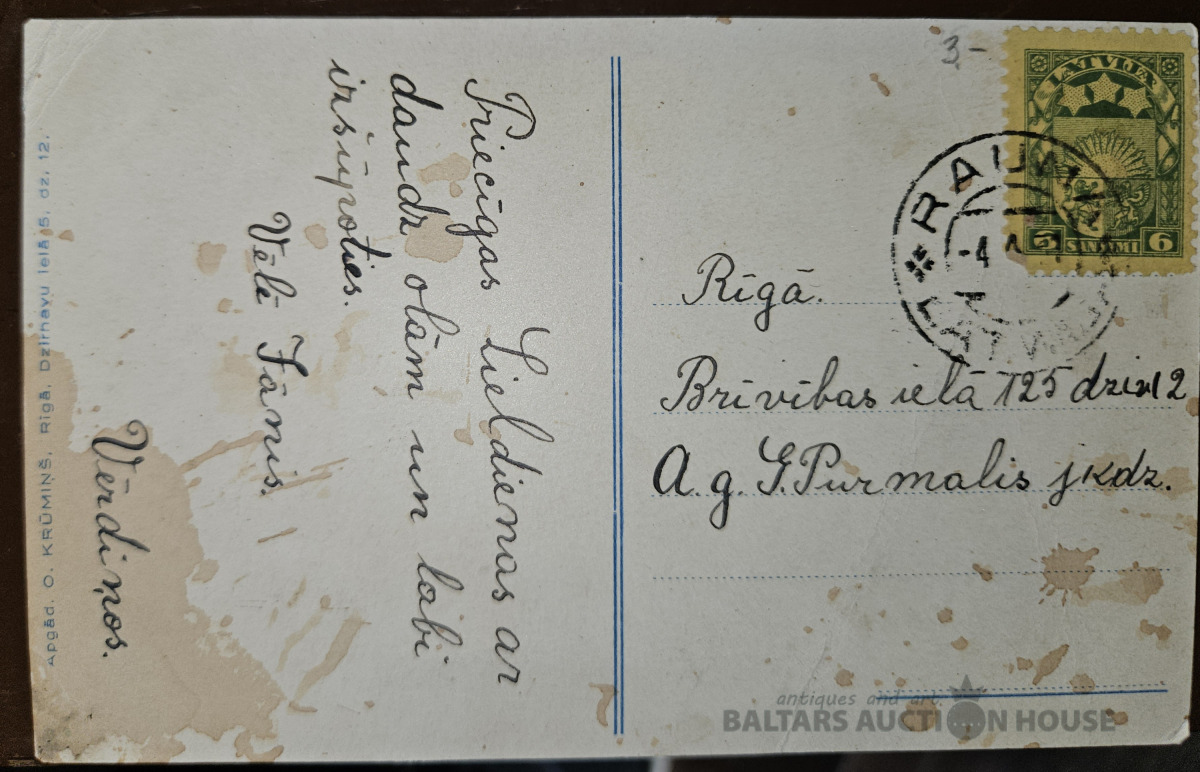 Priecīgas Lieldienas ar
daudz olām un labi
izšūpoties.
Vēlē Jānis.
Vērdiņos.
Apgād. O. KRŪMIŅŠ, Rīgā, Dzirnavu ielā 5, dz. 12.
3-
LATVIJA
5 SANTIMI 6
RAUNA
LATVIJA
-4
Rīgā.
Brīvības ielā 125 dziv 2
A. g. G. Purmalis jkdz.
antiques and art.
BALTARS AUCTION HOUSE